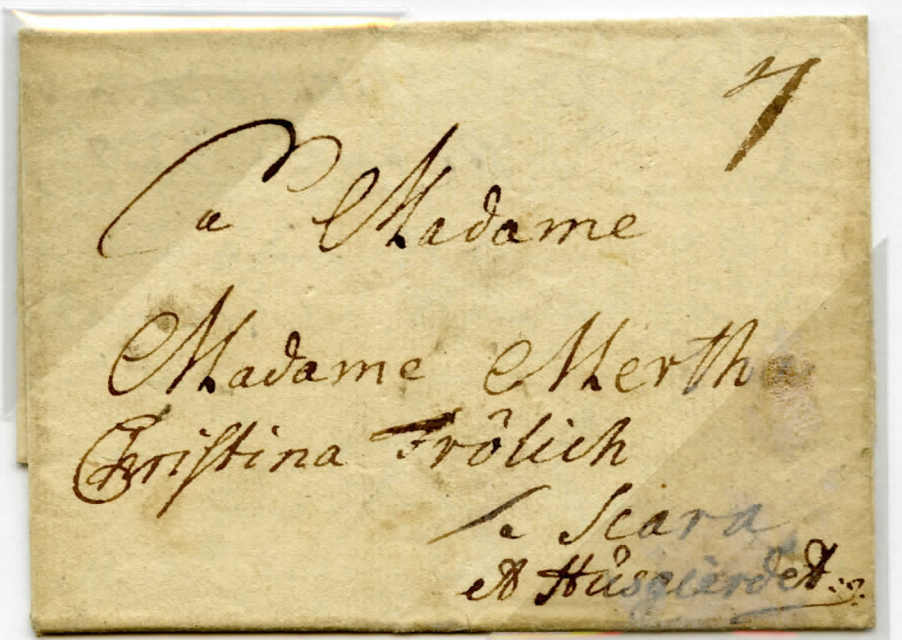 7
a Madame
Madame Merth
Christina Frölich
a Scara
et Hûsgierdet